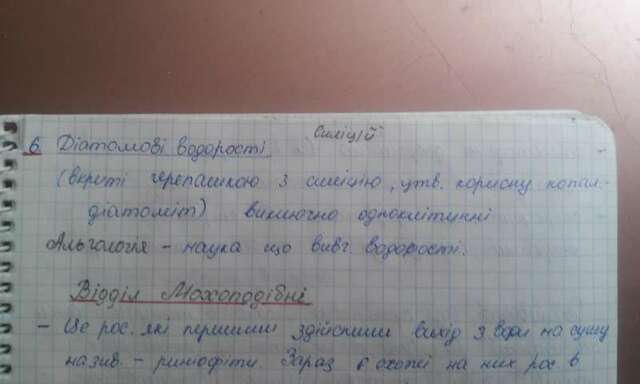 Силіцій
6 Діатомові водорості.
(вкриті черепашкою з силіцію, утв. корисну копал-
діатоміт) виключно одноклітинні
Альгологія - наука що вивч. водорості.
Відділ Мохоподібні
- Це рос. які першими здійснили вихід з води на сушу
назив. - риніофіти. Зараз є схожі на них рос. в